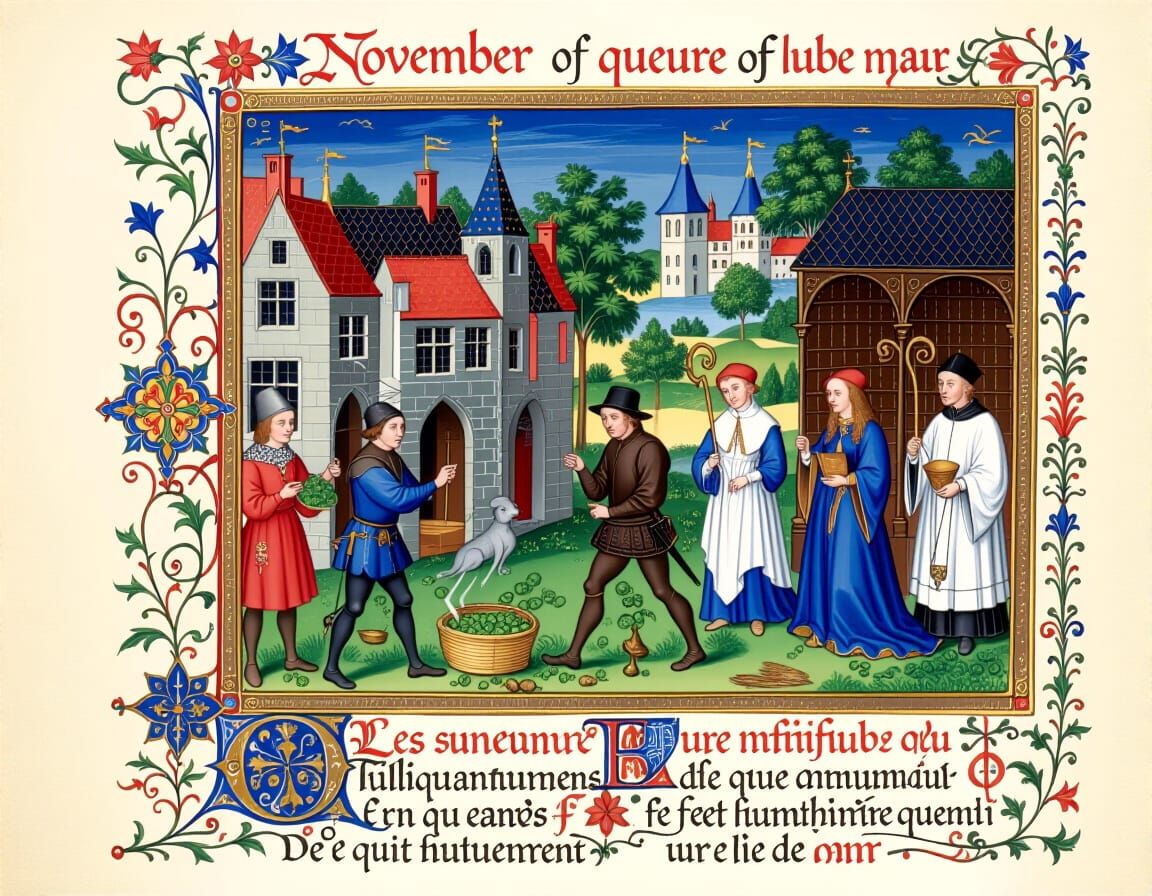 November of queure of lube maur
Les suneunure Eure mfiifiube qeu
Tuilliquantiumens dfe que amumaul-
Ern qu eanos F fe feet fiumthinire quemli
De e quit fiutuenrent ure lie de